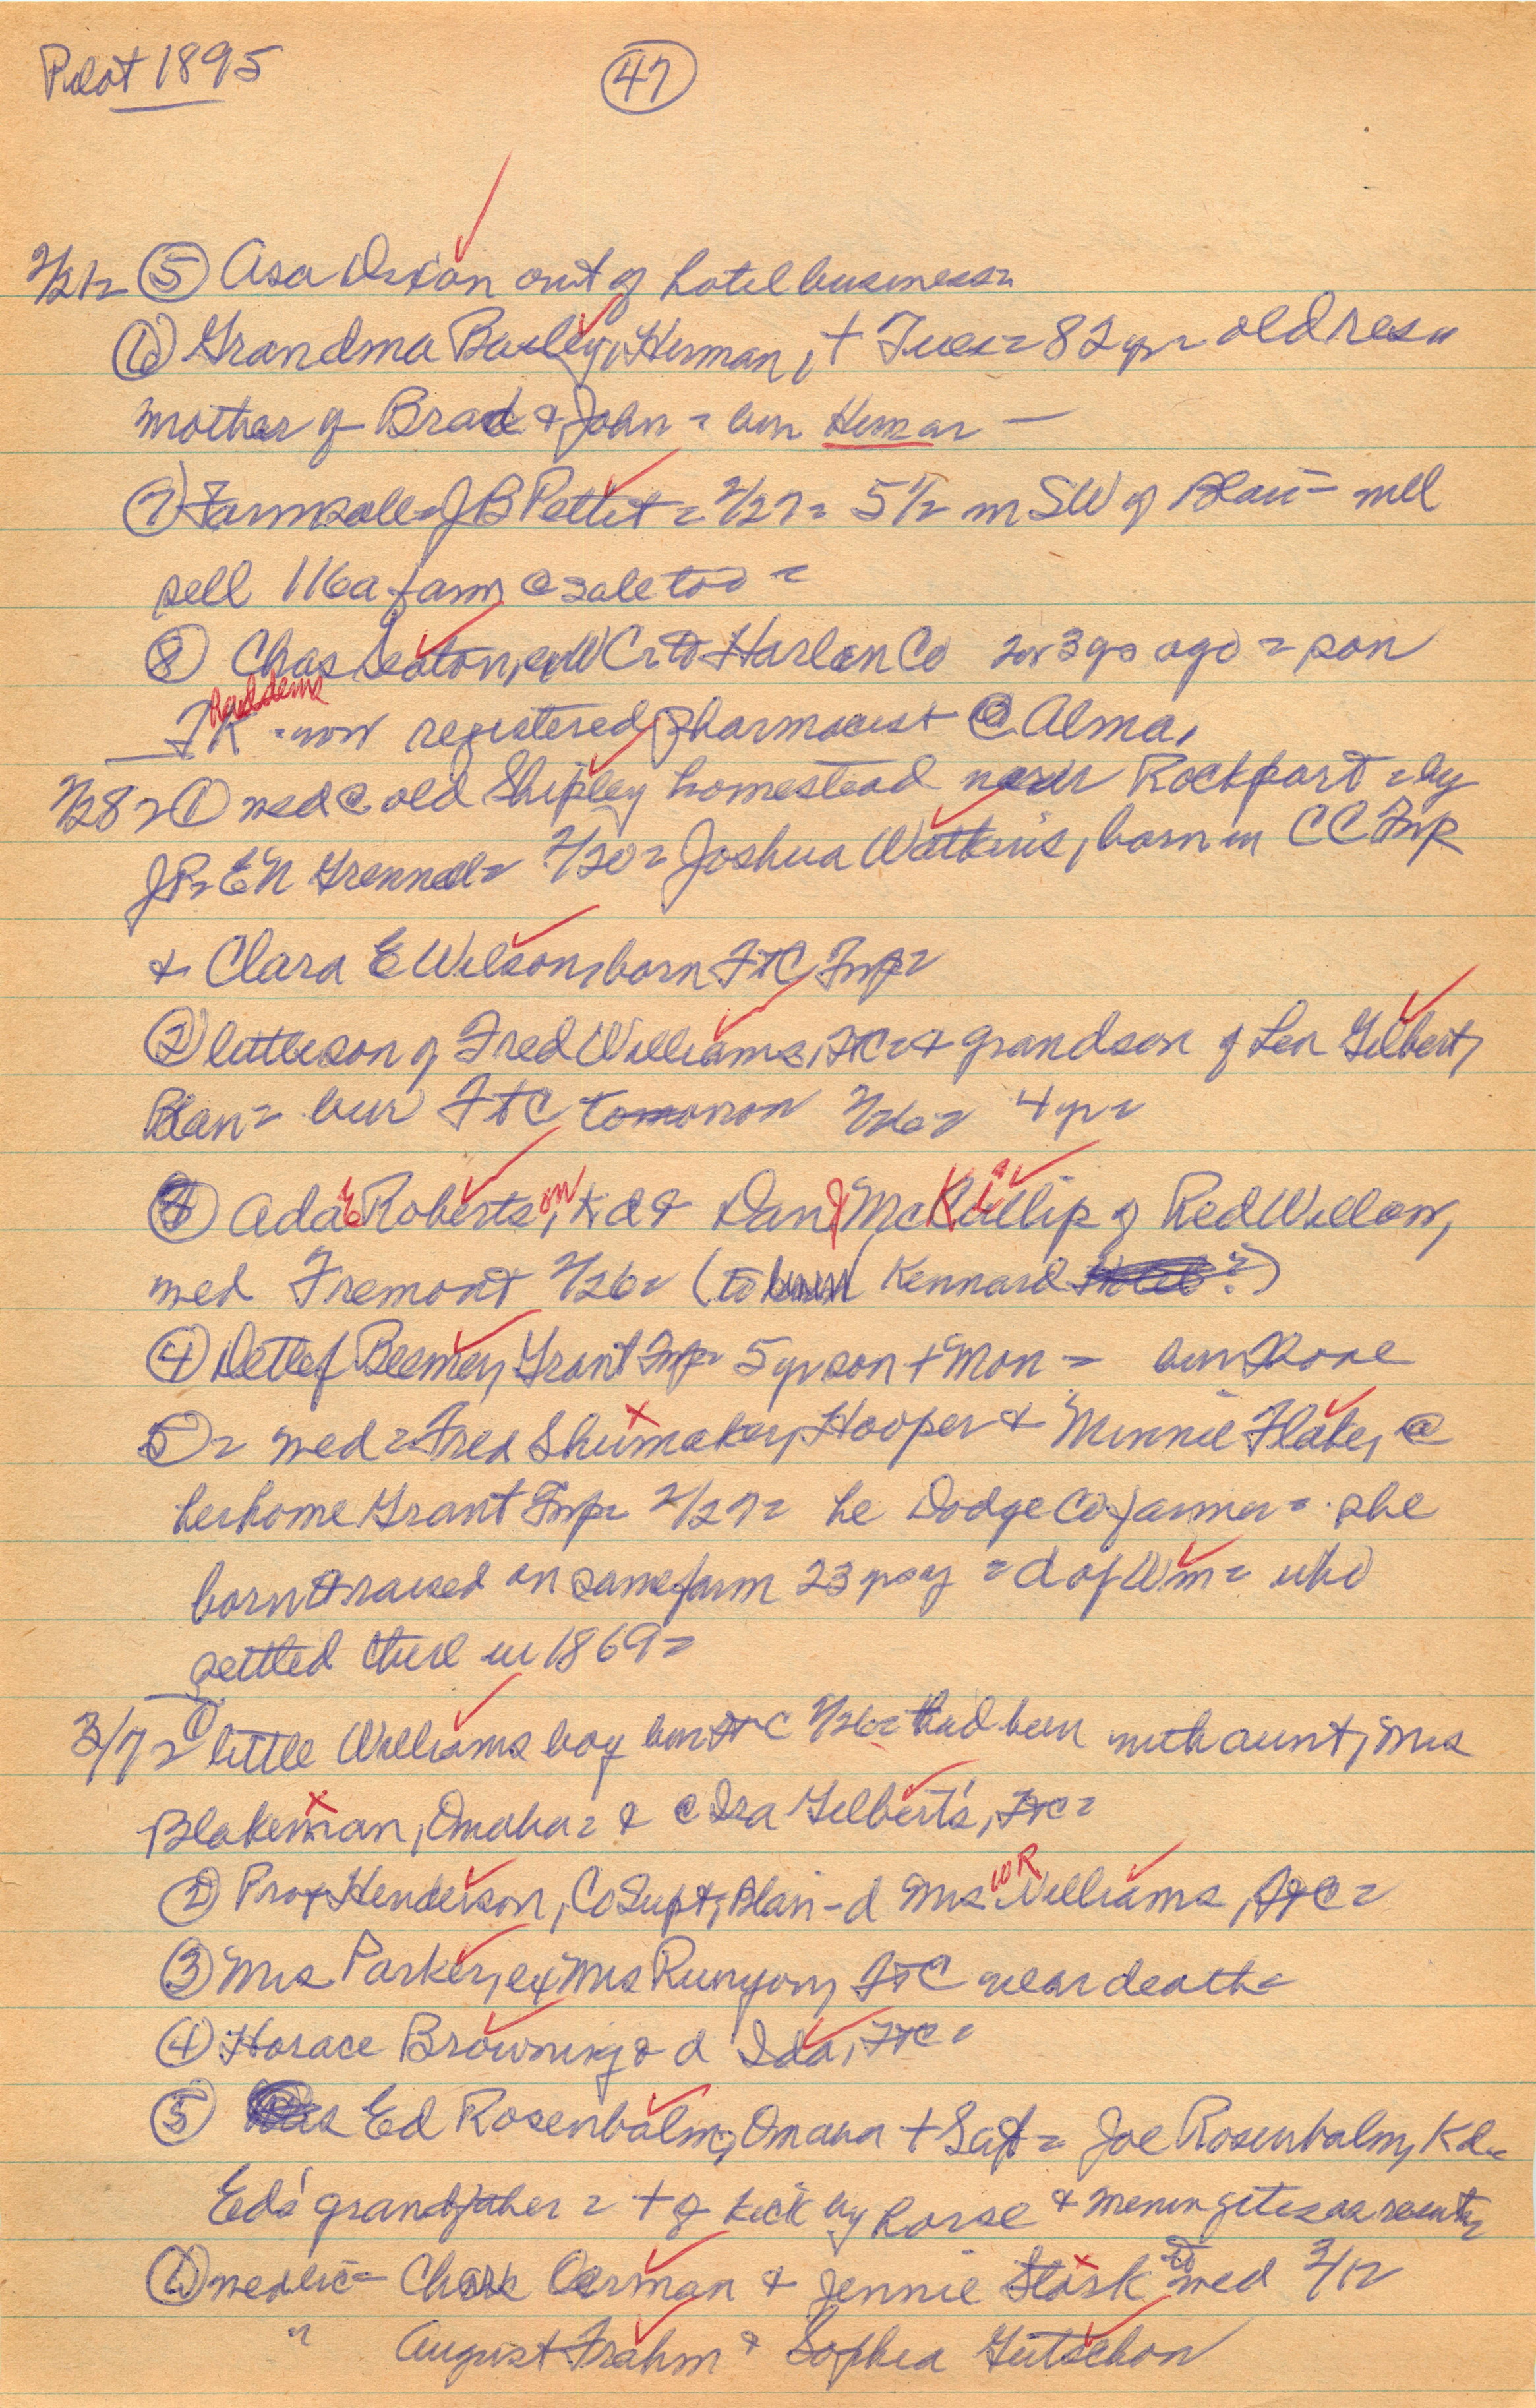 Pilot 1895
47
2/21 = 5 Asa Dixon out of hotel business =
6 Grandma Bailey, Herman, + Tues = 82 yr = old res =
mother of Brad & John = bur Herman —
7 Farm sale = J B Pettit = 2/27 = 5 1/2 m SW of Blair = will
sell 116a farm @ sale too =
8 Chas Seaton, ex WC = to Harlan Co 2 or 3 ys ago = son
FK = now registered pharmacist @ Alma,
2/28 = 1 wed @ old Shipley homestead near Rockport = by
JP = EN Grennell = 2/20 = Joshua Watkins, born in CC Twp
& Clara E Wilson, born FtC Twp =
2 little son of Fred Williams, FtC = & grandson of Len Gilbert,
Blair = bur FtC tomorrow 2/26 = 4 yr =
3 Ada E Robertson, Kd & Dan J McKillip of Red Willow,
wed Fremont 2/26 = (to Kennard ?)
4 Detlef Beemer, Grant Twp = 5 yr son + Mon = bur Rose
5 = wed = Fred Shumaker, Hooper & Minnie Flake, @
her home Grant Twp = 2/27 = he Dodge Co farmer = she
born & raised on same farm 23 ys ago = d of Wm = who
settled there in 1869 =
3/7 = 1 little Williams boy bur FtC 2/26 = had been with aunt, Mrs
Blakeman, Omaha = & @ Ira Gilbert's, FtC =
2 Prof Henderson, Co Supt, Blair - d Mrs WR Williams, FtC =
3 Mrs Parker, ex Mrs Runyon, FtC near death =
4 Horace Browning & d Ida, FtC =
5 Ed Rosenbalm, Omaha + Sat = Joe Rosenbalm, Kd =
Ed's grandfather = + of kick by horse & meningitis as result
6 wed lic = Chas Carman & Jennie Stark to wed 3/12
" August Frahm & Sophia Gutschow